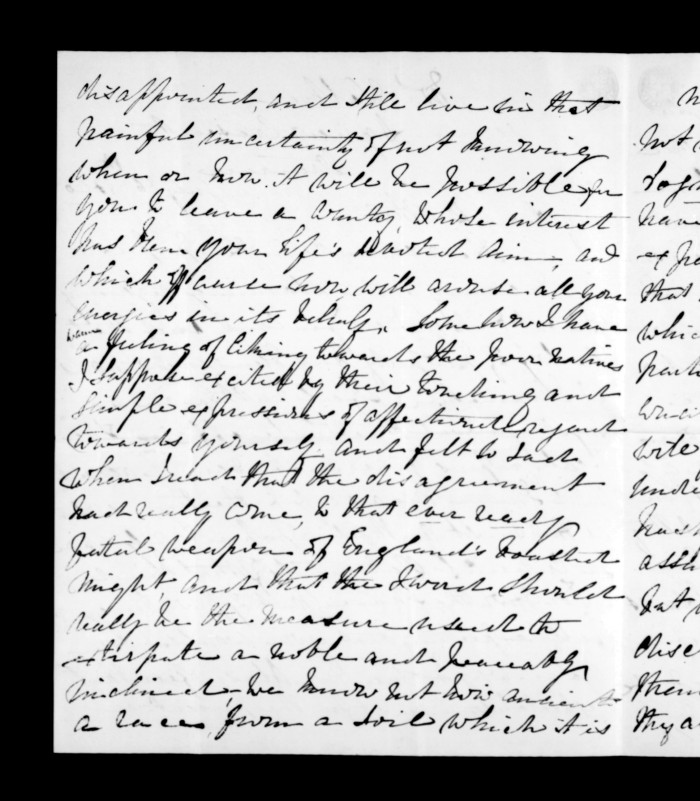 disappointed, and still live in that
painful uncertainty of not knowing
when or how it will be possible for
you to leave a country, whose interest
has been your life's devoted aim, and
which of course now, will arouse all your
energies in its behalf. Somehow I have
a warm feeling of liking towards the poor natives
I suppose excited by their touching and
simple expressions of affectionate regard
towards yourself and felt so sad
when I read that the disagreement
had really come, to that ever ready
fatal weapon of England's boasted
might, and that the sword should
really be the measure used to
exterpate a noble and peaceably
inclined, we know not how ancient
a race, from a soil which it is
not
have
that
but
them
they a